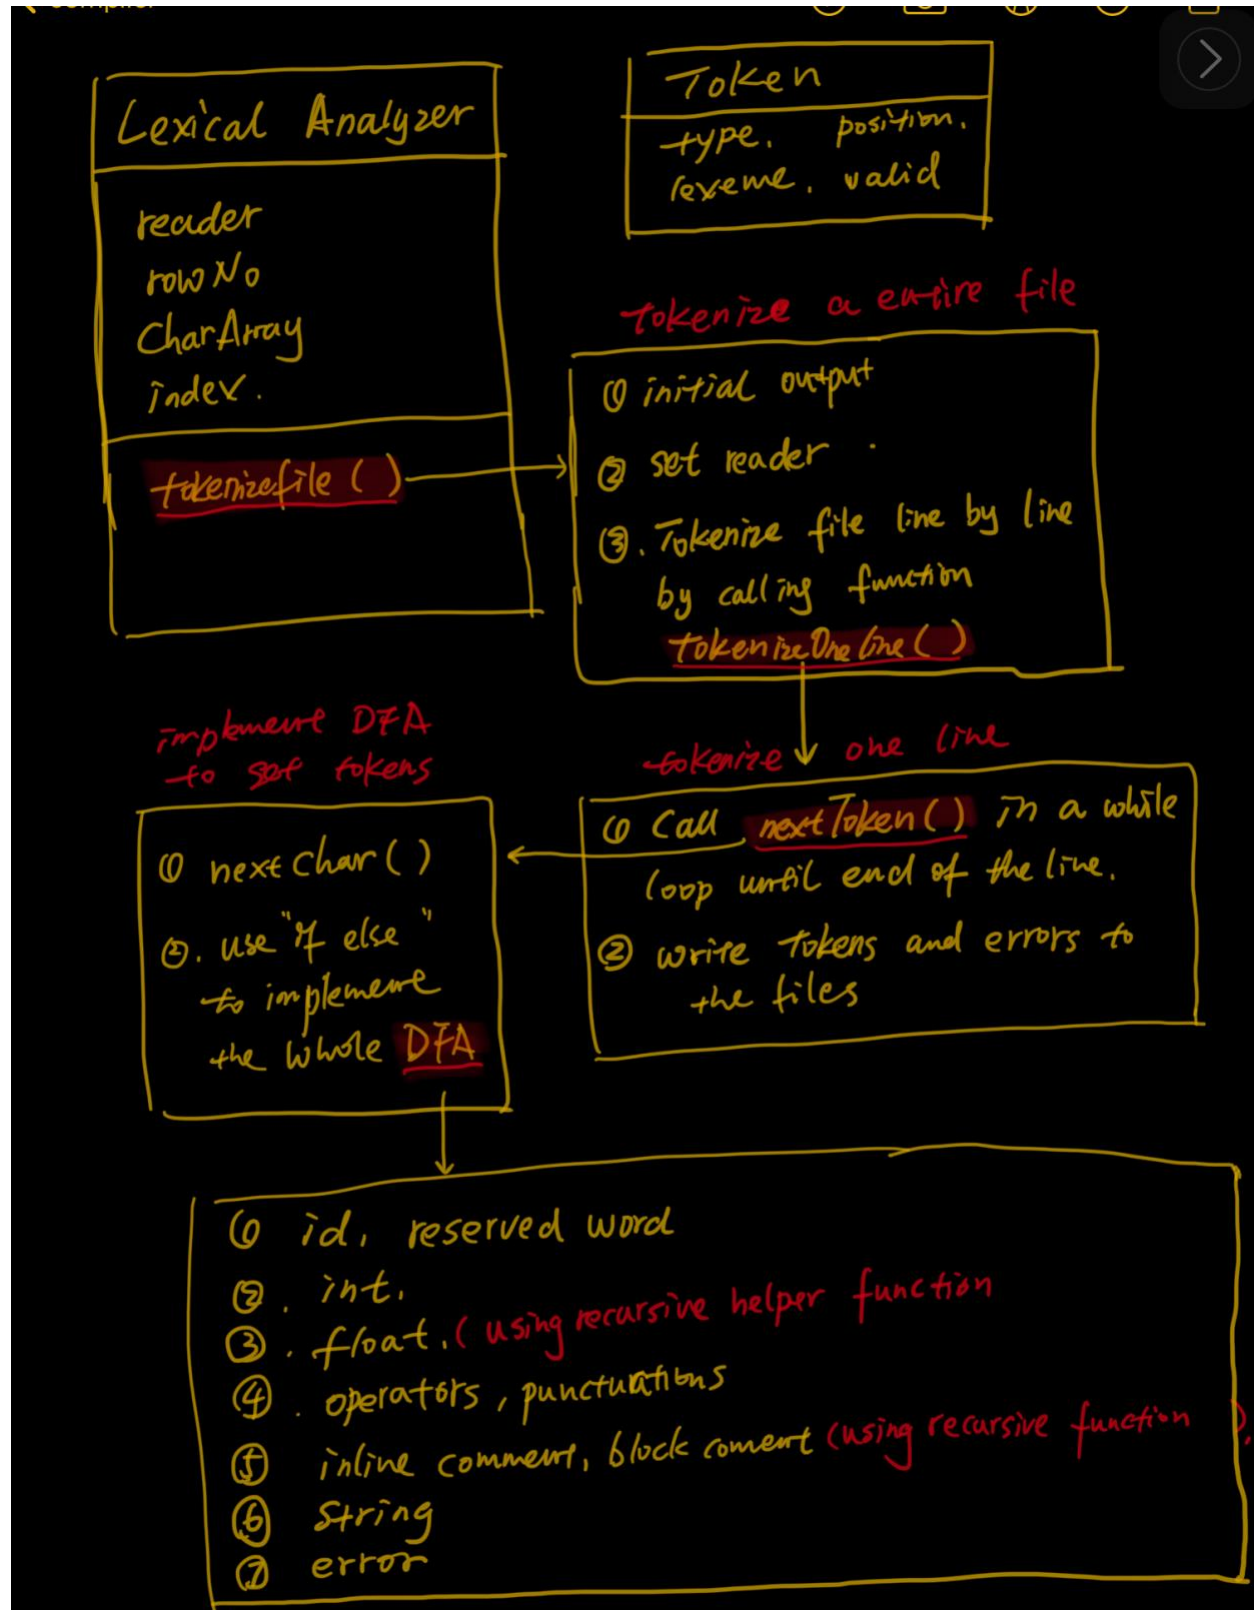 Lexical Analyzer
reader
rowNo
CharArray
index.
tokenizefile ( )
Token
type. position.
lexeme. valid
tokenize a entire file
① initial output
② set reader .
③. Tokenize file line by line
by calling function
tokenizeOneline ( )
tokenize one line
① Call nextToken ( ) in a while
loop until end of the line.
② write tokens and errors to
the files
implement DFA
to set tokens
① next char ( )
②. use "if else"
to implement
the whole DFA
① id, reserved word
②. int.
③. float. ( using recursive helper function
④. operators, punctuations
⑤ inline comment, block coment (using recursive function ).
⑥ String
⑦ error